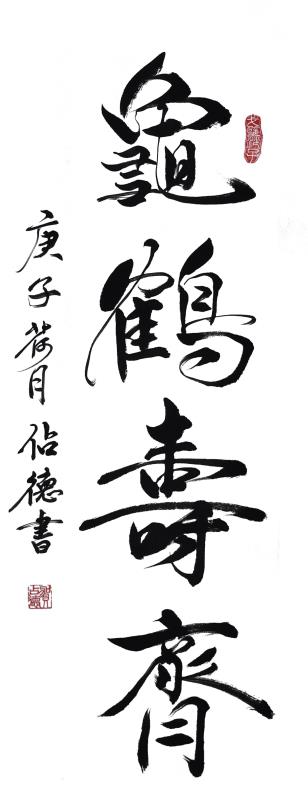 龜鶴壽齊
庚子荷月佔德書